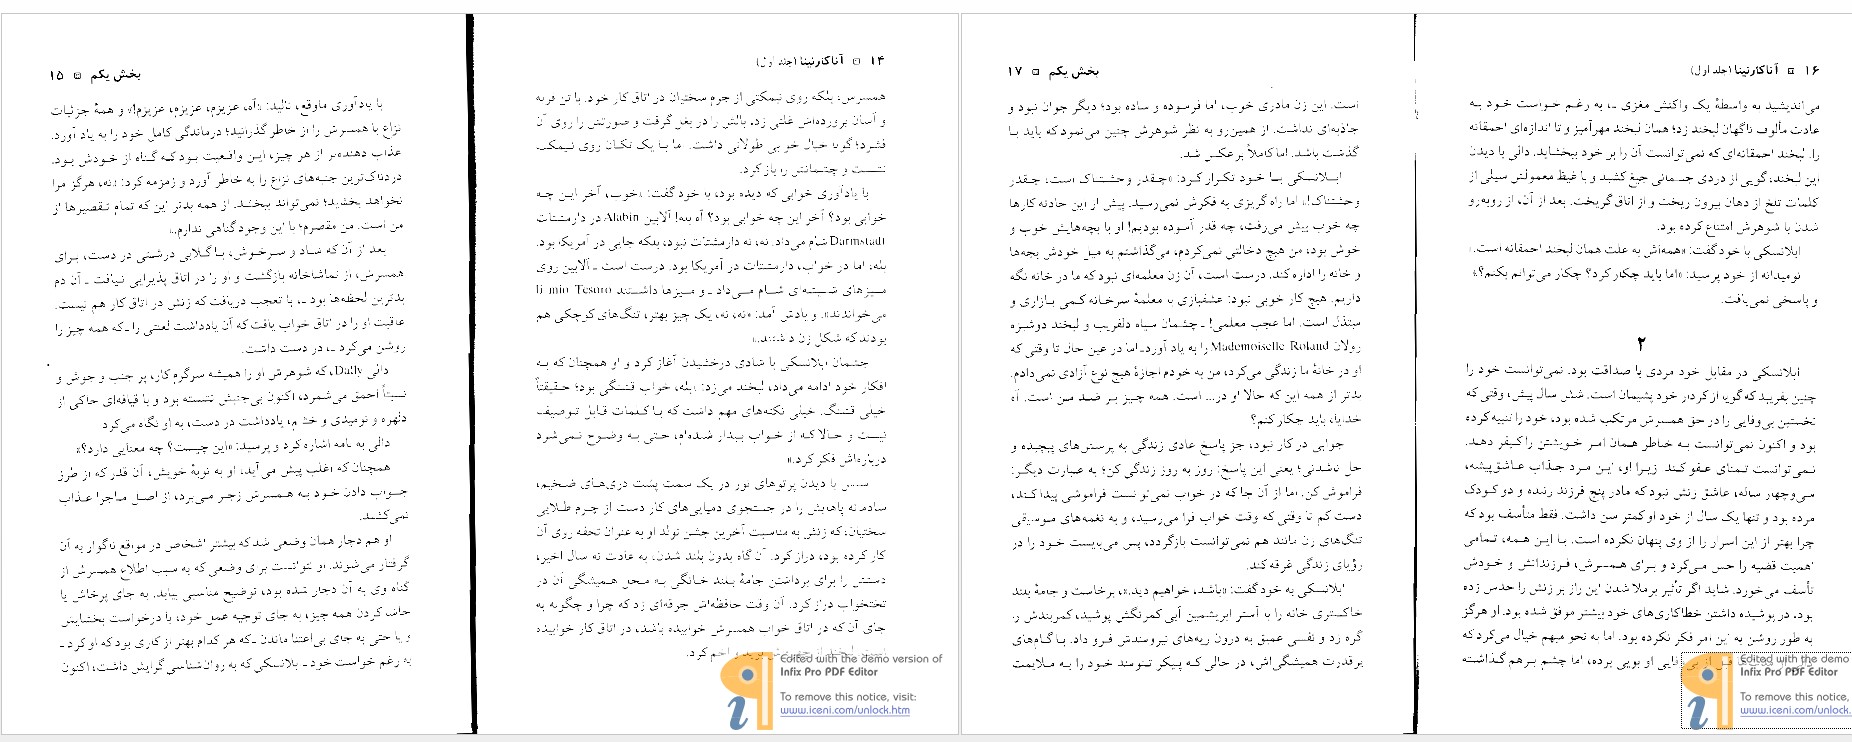 ۱۴ ◘ آناکارنینا (جلد اول)
همسرش، بلکه روی نیمکتی از چرم سختیان در اتاق کار خود. با تن فربه
و آسان پرورده‌اش غلتی زد، بالش را در بغل گرفت و صورتش را روی آن
فشرد؛ گویا خیال خوابی طولانی داشت. اما با یک تکان روی نیمکت
نشست و چشمانش را باز کرد.
با یادآوری خوابی که دیده بود، با خود گفت: «خوب، آخر این چه
خوابی بود؟ آخر این چه خوابی بود؟ آه بله! آلابین Alabin در دارمشتات
Darmstadt شام می‌داد. نه، نه دارمشتات نبود، بلکه جایی در آمریکا بود.
بله، اما در خواب، دارمشتات در آمریکا بود. درست است ـ آلابین روی
میزهای شیشه‌ای شام می‌داد ـ و میزها داشتند Il mio Tesoro
می‌خواندند». و یادش آمد: «نه، نه، یک چیز بهتر، تنگ‌های کوچکی هم
بودند که شکل زن داشتند.»
چشمان ابلانسکی با شادی درخشیدن آغاز کرد و او همچنان که به
افکار خود ادامه می‌داد، لبخند می‌زد: «بله، خواب قشنگی بود؛ حقیقتاً
خیلی قشنگ. خیلی نکته‌های مهم داشت که با کلمات قابل توصیف
نیست و حالا که از خواب بیدار شده‌ام، حتی به وضوح نمی‌شود
درباره‌اش فکر کرد.»
سپس با دیدن پرتوهای نور در یک سمت پشت دری‌های ضخیم،
شادمانه پاهایش را در جستجوی دمپایی‌های کار دست از چرم طلایی
سختیان، که زنش به مناسبت آخرین جشن تولد او به عنوان تحفه روی آن
کار کرده بود، دراز کرد. آن گاه بدون بلند شدن، به عادت نه سال اخیر،
دستش را برای برداشتن جامهٔ بلند خانگی به محل همیشگی آن در
تختخواب دراز کرد. آن وقت حافظه‌اش جرقه‌ای زد که چرا و چگونه به
جای آن که در اتاق خواب همسرش خوابیده باشد، در اتاق کار خوابیده
لبخند از چهره‌اش و اخم کرد.
Edited with the demo version of
Infix Pro PDF Editor
To remove this notice, visit:
www.iceni.com/unlock.htm
بخش یکم ◘ ۱۵
با یادآوری ماوقع، نالید: «آه، عزیزم، عزیزم، عزیزم!» و همهٔ جزئیات
نزاع با همسرش را از خاطر گذرانید؛ درماندگی کامل خود را به یاد آورد.
عذاب دهنده‌تر از هر چیز، این واقعیت بود که گناه از خودش بود.
دردناک‌ترین جنبه‌های نزاع را به خاطر آورد و زمزمه کرد: «نه، هرگز مرا
نخواهد بخشید؛ نمی‌تواند ببخشد. از همه بدتر این که تمام تقصیرها از
من است. من مقصرم؛ با این وجود گناهی ندارم.»
بعد از آن که شاد و سرخوش، با گلابی درشتی در دست، برای
همسرش، از تماشاخانه بازگشت و او را در اتاق پذیرایی نیافت ـ آن دم
بدترین لحظه‌ها بود ـ، با تعجب دریافت که زنش در اتاق کار هم نیست.
عاقبت او را در اتاق خواب یافت که آن یادداشت لعنتی را ـ که همه چیز را
روشن می‌کرد ـ، در دست داشت.
دالی Dally، که شوهرش او را همیشه سرگرم کار، پر جنب و جوش و
نسبتاً احمق می‌شمرد، اکنون بی‌جنبش نشسته بود و با قیافه‌ای حاکی از
دلهره و نومیدی و خشم، یادداشت در دست، به او نگاه می‌کرد
دالی به نامه اشاره کرد و پرسید: «این چیست؟ چه معنایی دارد؟»
همچنان که اغلب پیش می‌آید، او به نوبهٔ خویش، آن قدر که از طرز
جواب دادن خود به همسرش زجر می‌برد، از اصل ماجرا عذاب
نمی‌کشید.
او هم دچار همان وضعی شد که بیشتر اشخاص در مواقع ناگوار به آن
گرفتار می‌شوند. او نتوانست برای وضعی که به سبب اطلاع همسرش از
گناه وی به آن دچار شده بود، توضیح مناسبی بیابد. به جای پرخاش یا
حاشا کردن همه چیز، به جای توجیه عمل خود، یا درخواست بخشایش
و یا حتی به جای بی‌اعتنا ماندن ـ که هر کدام بهتر از کاری بود که او کرد ـ
به رغم خواست خود ـ ابلانسکی که به روان‌شناسی گرایش داشت، اکنون
۱۶ ◘ آناکارنینا (جلد اول)
می‌اندیشید به واسطهٔ یک واکنش مغزی ـ، به رغم خواست خود به
عادت مألوف ناگهان لبخند زد؛ همان لبخند مهرآمیز و تا اندازه‌ای احمقانه
را. لبخند احمقانه‌ای که نمی‌توانست آن را بر خود ببخشاید. دالی با دیدن
این لبخند، گویی از دردی جسمانی جیغ کشید و با غیظ معمولش سیلی از
کلمات تلخ از دهان بیرون ریخت و از اتاق گریخت. بعد از آن، از روبه‌رو
شدن با شوهرش امتناع کرده بود.
ابلانسکی با خود گفت: «همه‌اش به علت همان لبخند احمقانه است.»
نومیدانه از خود پرسید: «اما باید چکار کرد؟ چکار می‌توانم بکنم؟»
و پاسخی نمی‌یافت.
۲
ابلانسکی در مقابل خود مردی با صداقت بود. نمی‌توانست خود را
چنین بفریبد که گویا از کردار خود پشیمان است. شش سال پیش، وقتی که
نخستین بی‌وفایی را در حق همسرش مرتکب شده بود، خود را تنبیه کرده
بود و اکنون نمی‌توانست به خاطر همان امر خویشتن را کیفر دهد.
نمی‌توانست تمنای عفو کند. زیرا او، این مرد جذاب عاشق‌پیشه،
سی‌وچهار ساله، عاشق زنش نبود که مادر پنج فرزند زنده و دو کودک
مرده بود و تنها یک سال از خود او کمتر سن داشت. فقط متأسف بود که
چرا بهتر از این اسرار را از وی پنهان نکرده است. با این همه، تمامی
اهمیت قضیه را حس می‌کرد و برای همسرش، فرزندانش و خودش
تأسف می‌خورد. شاید اگر تأثیر برملا شدن این راز بر زنش را حدس زده
بود، در پوشیده داشتن خطاکاری‌های خود بیشتر موفق شده بود. او هرگز
به طور روشن به این امر فکر نکرده بود. اما به نحو مبهم خیال می‌کرد که
قبل از بی‌وفایی او بویی برده، اما چشم بر هم گذاشته
Edited with the demo
Infix Pro PDF Editor
To remove this notice,
www.iceni.com/unlock.
بخش یکم ◘ ۱۷
است. این زن مادری خوب، اما فرسوده و ساده بود؛ دیگر جوان نبود و
جاذبه‌ای نداشت. از همین‌رو به نظر شوهرش چنین می‌نمود که باید با
گذشت باشد. اما کاملاً برعکس شد.
ابلانسکی با خود تکرار کرد: «چقدر وحشتناک است، چقدر
وحشتناک!» اما راه گریزی به فکرش نمی‌رسید. پیش از این حادثه کارها
چه خوب پیش می‌رفت، چه قدر آسوده بودیم! او با بچه‌هایش خوب و
خوش بود، من هیچ دخالتی نمی‌کردم، می‌گذاشتم به میل خودش بچه‌ها
و خانه را اداره کند. درست است، آن زن معلمه‌ای نبود که ما در خانه نگه
داریم. هیچ کار خوبی نبود: عشقبازی با معلمهٔ سرخانه کمی بازاری و
مبتذل است. اما عجب معلمی! ـ چشمان سیاه دلفریب و لبخند دوشیزه
رولان Mademoiselle Roland را به یاد آورد ـ اما در عین حال تا وقتی که
او در خانهٔ ما زندگی می‌کرد، من به خودم اجازهٔ هیچ نوع آزادی نمی‌دادم.
بدتر از همه این که حالا او در... است. همه چیز بر ضد من است. آه
خدایا، باید چکار کنم؟
جوابی در کار نبود، جز پاسخ عادی زندگی به پرسش‌های پیچیده و
حل ناشدنی؛ یعنی این پاسخ: روز به روز زندگی کن؛ به عبارت دیگر:
فراموش کن. اما از آن جا که در خواب نمی‌توانست فراموشی پیدا کند،
دست کم تا وقتی که وقت خواب فرا می‌رسید، و به نغمه‌های موسیقی
تنگ‌های زن مانند هم نمی‌توانست بازگردد، پس می‌بایست خود را در
رؤیای زندگی غرقه کند.
ابلانسکی به خود گفت: «باشد، خواهیم دید.»، برخاست و جامهٔ بلند
خاکستری خانه را با آستر ابریشمین آبی کمرنگش پوشید، کمربندش را
گره زد و نفسی عمیق به درون ریه‌های نیرومندش فرو داد. با گام‌های
پرقدرت همیشگی‌اش، در حالی که پیکر تنومند خود را به ملایمت